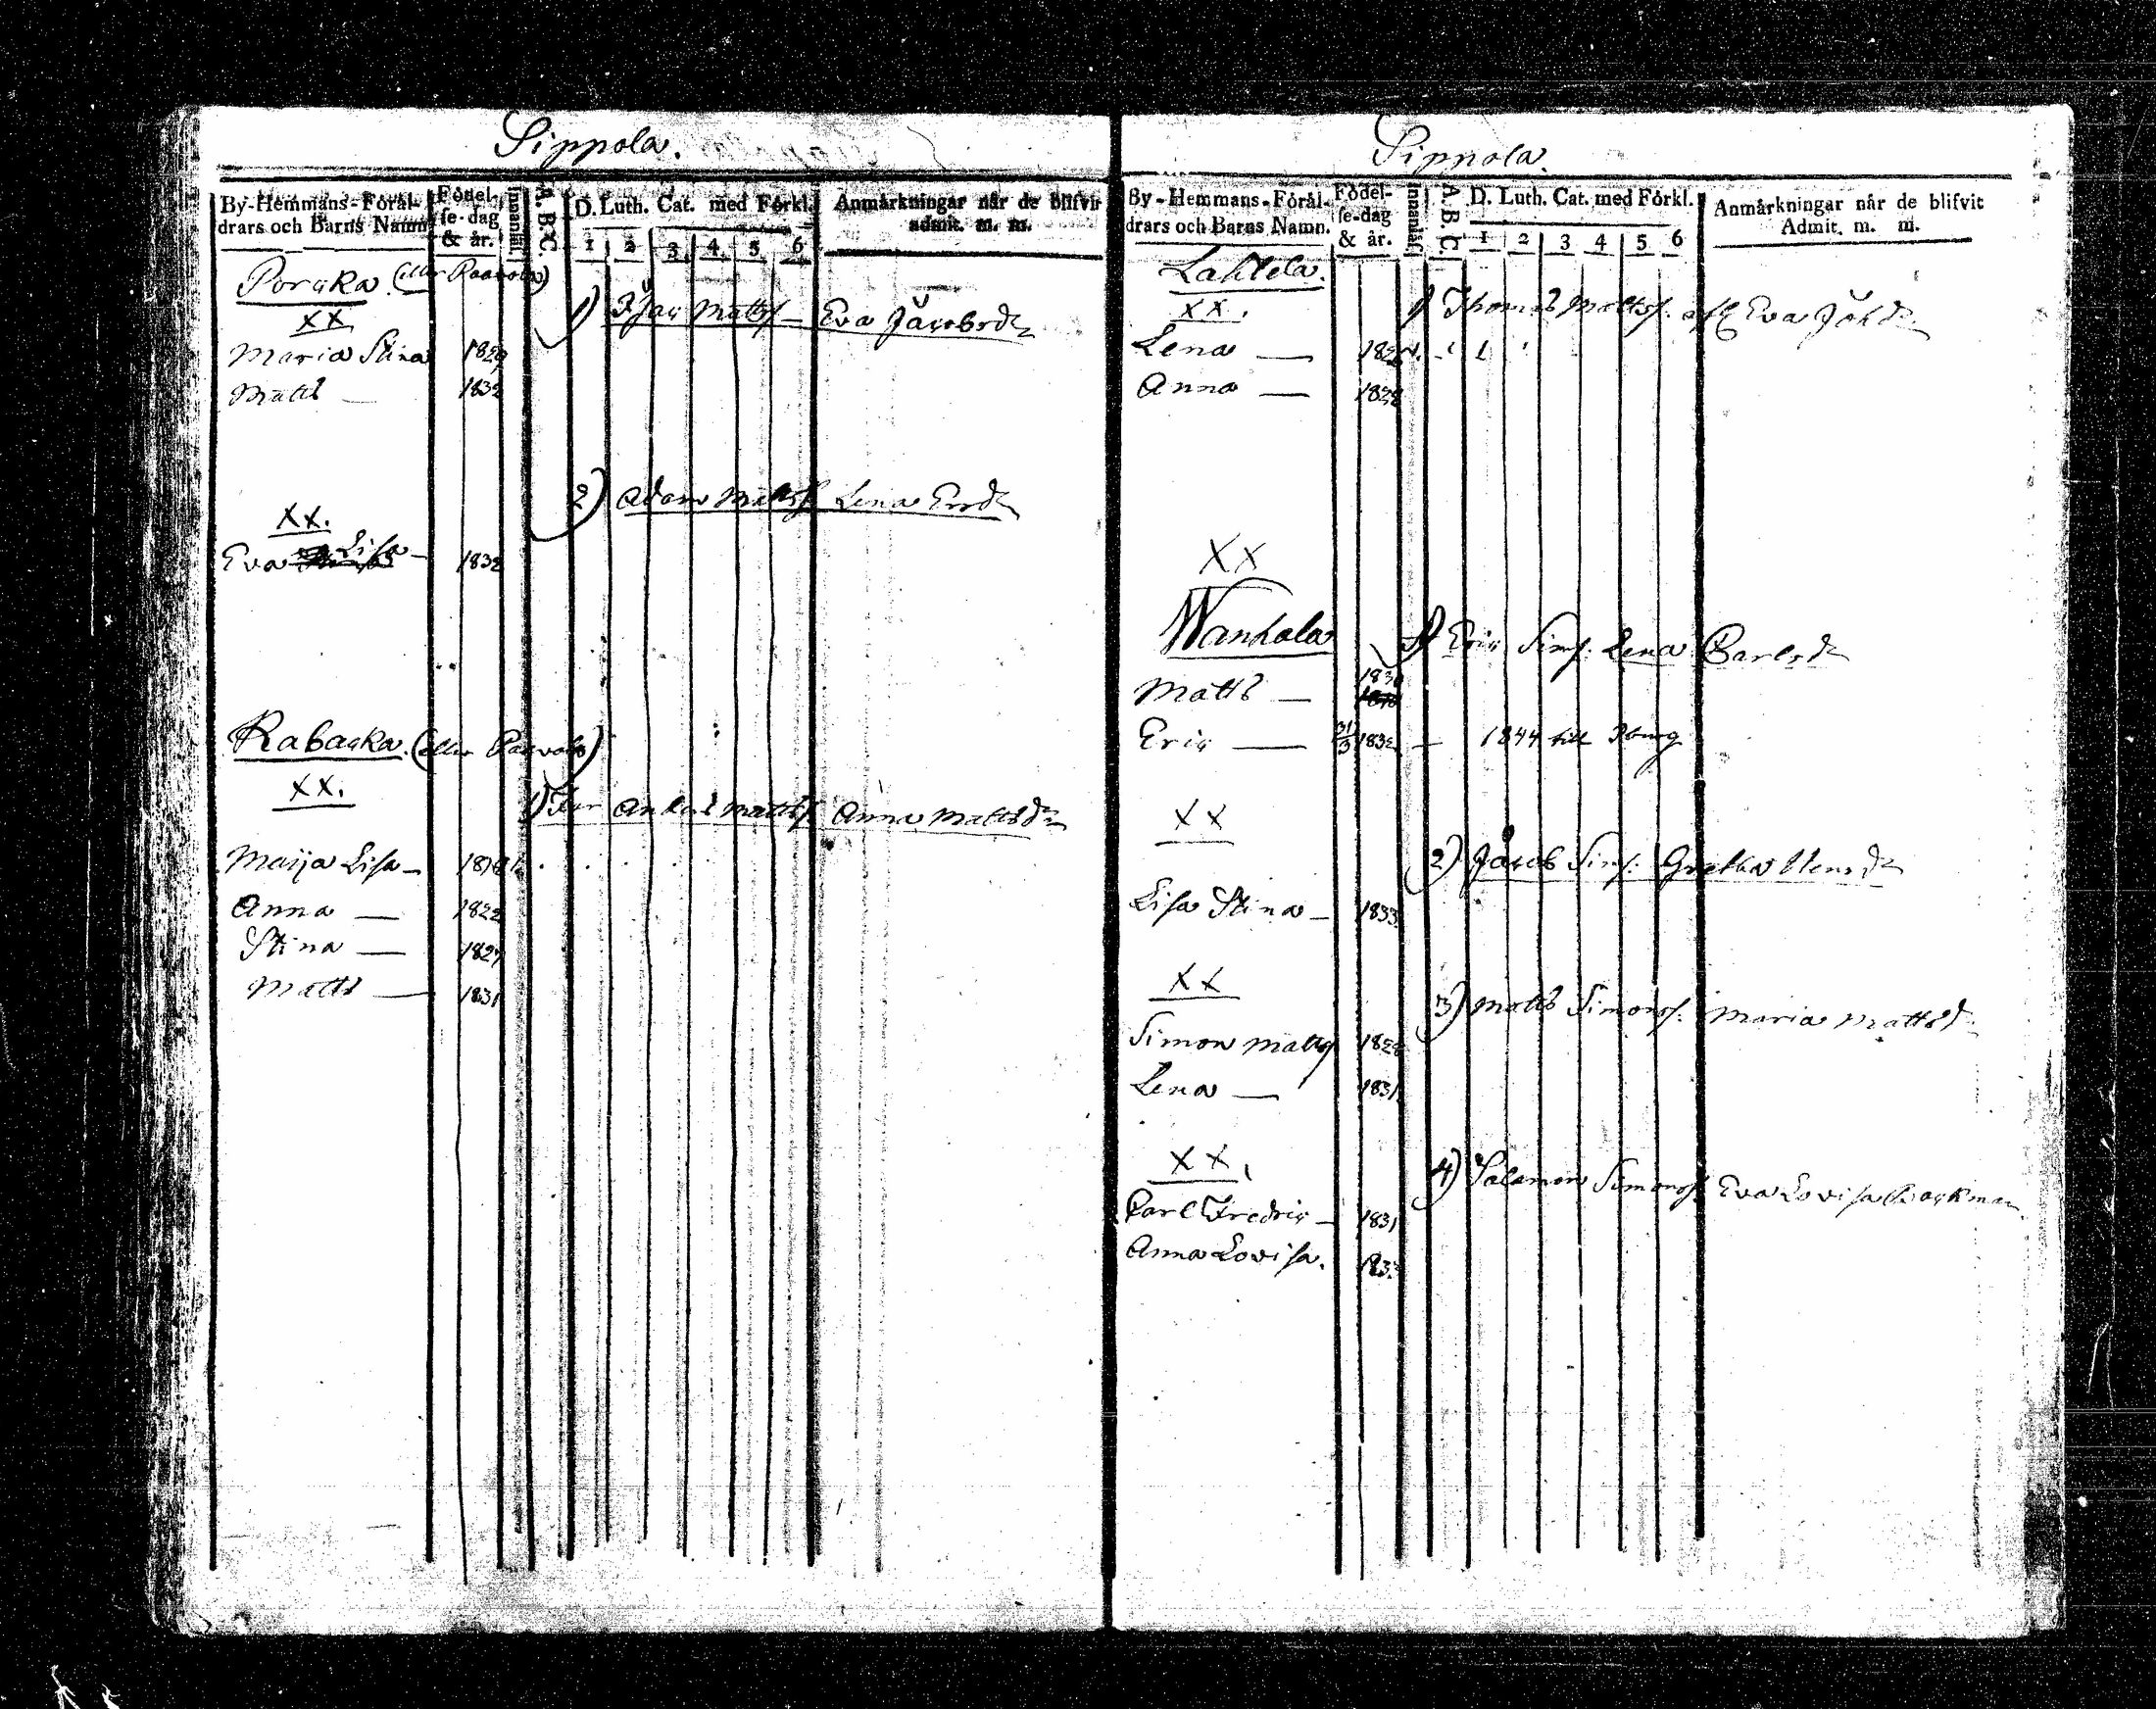 Sippola.
By-Hemmans-Förål-
drars och Barns Namn
Födel-
se-dag
& år.
Innanläs.
A. B. C.
D. Luth. Cat. med Förkl.
1 2 3 4 5 6
Anmärkningar når de blifvit
admit. m. m.
(eller Paavola)
XX
1) Mattss – Eva Jacobsdr
Maria Stina 1829
Matts — 1832
XX.
2) Adam Mattss Lena Ersdr
Eva Lisa – 1832
(eller Paavola)
XX.
1) Matts Anna Mattsdr
Maija Lisa –
Anna — 1822
Stina — 1827
Matts — 1831
Sippola.
By-Hemmans-Förål-
drars och Barns Namn.
Födel-
se-dag
& år.
Innanläs.
A. B. C.
D. Luth. Cat. med Förkl.
1 2 3 4 5 6
Anmärkningar når de blifvit
Admit. m. m.
Lahtela.
XX.
1) Thomas Mattss. Eva Joh.dr
Lena —
Anna — 1828
XX
Wanhala
1) Eric Sims. Lena Carlsdr
Matts —
Eric — 31/3 1832 – 1844 till
XX
2) Jacob Sims. Gretha Hensdr
Lisa Stina – 1833
XX
3) Matts Simonss. Maria Mattsd.
Simon Matts 1828
Lena — 1831
XX.
4) Salamon Simonss. Eva Lovisa Backman
Carl Fredric – 1831
Anna Lovisa. 1833